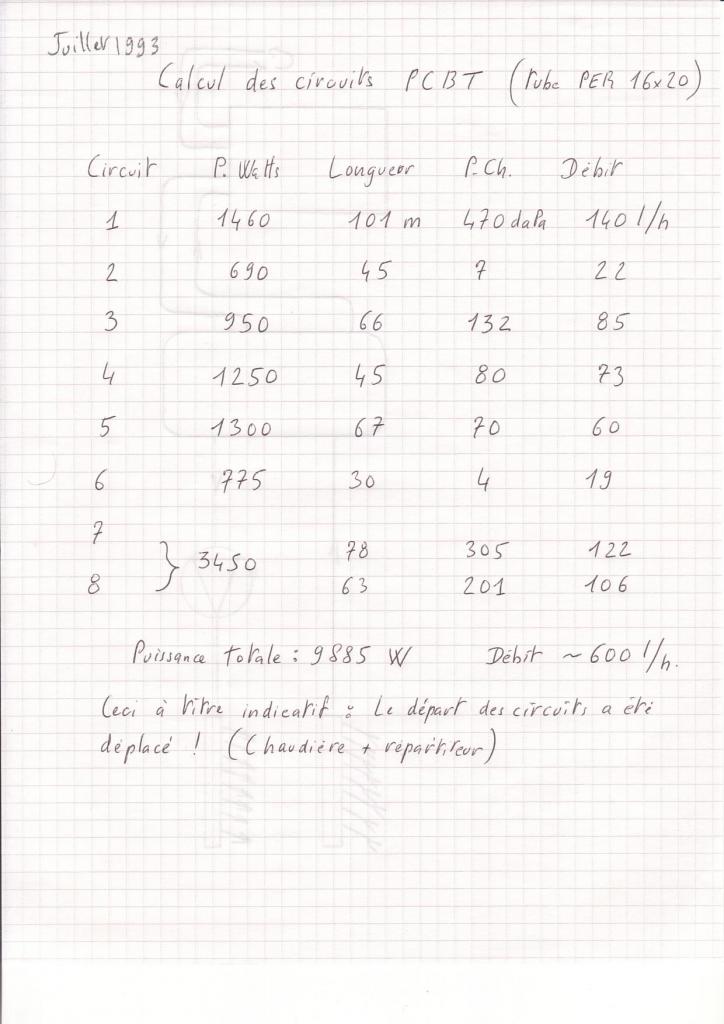 Juillet 1993
Calcul des circuits PCBT (tube PER 16x20)
Circuit P. Watts Longueur P.Ch. Débit
1 1460 101 m 470 daPa 140 l/h
2 690 45 7 22
3 950 66 132 85
4 1250 45 80 73
5 1300 67 70 60
6 775 30 4 19
7 } 3450 78 305 122
8 63 201 106
Puissance totale : 9885 W Débit ~ 600 l/h.
Ceci à titre indicatif : Le départ des circuits a été
déplacé ! (Chaudière + répartiteur)